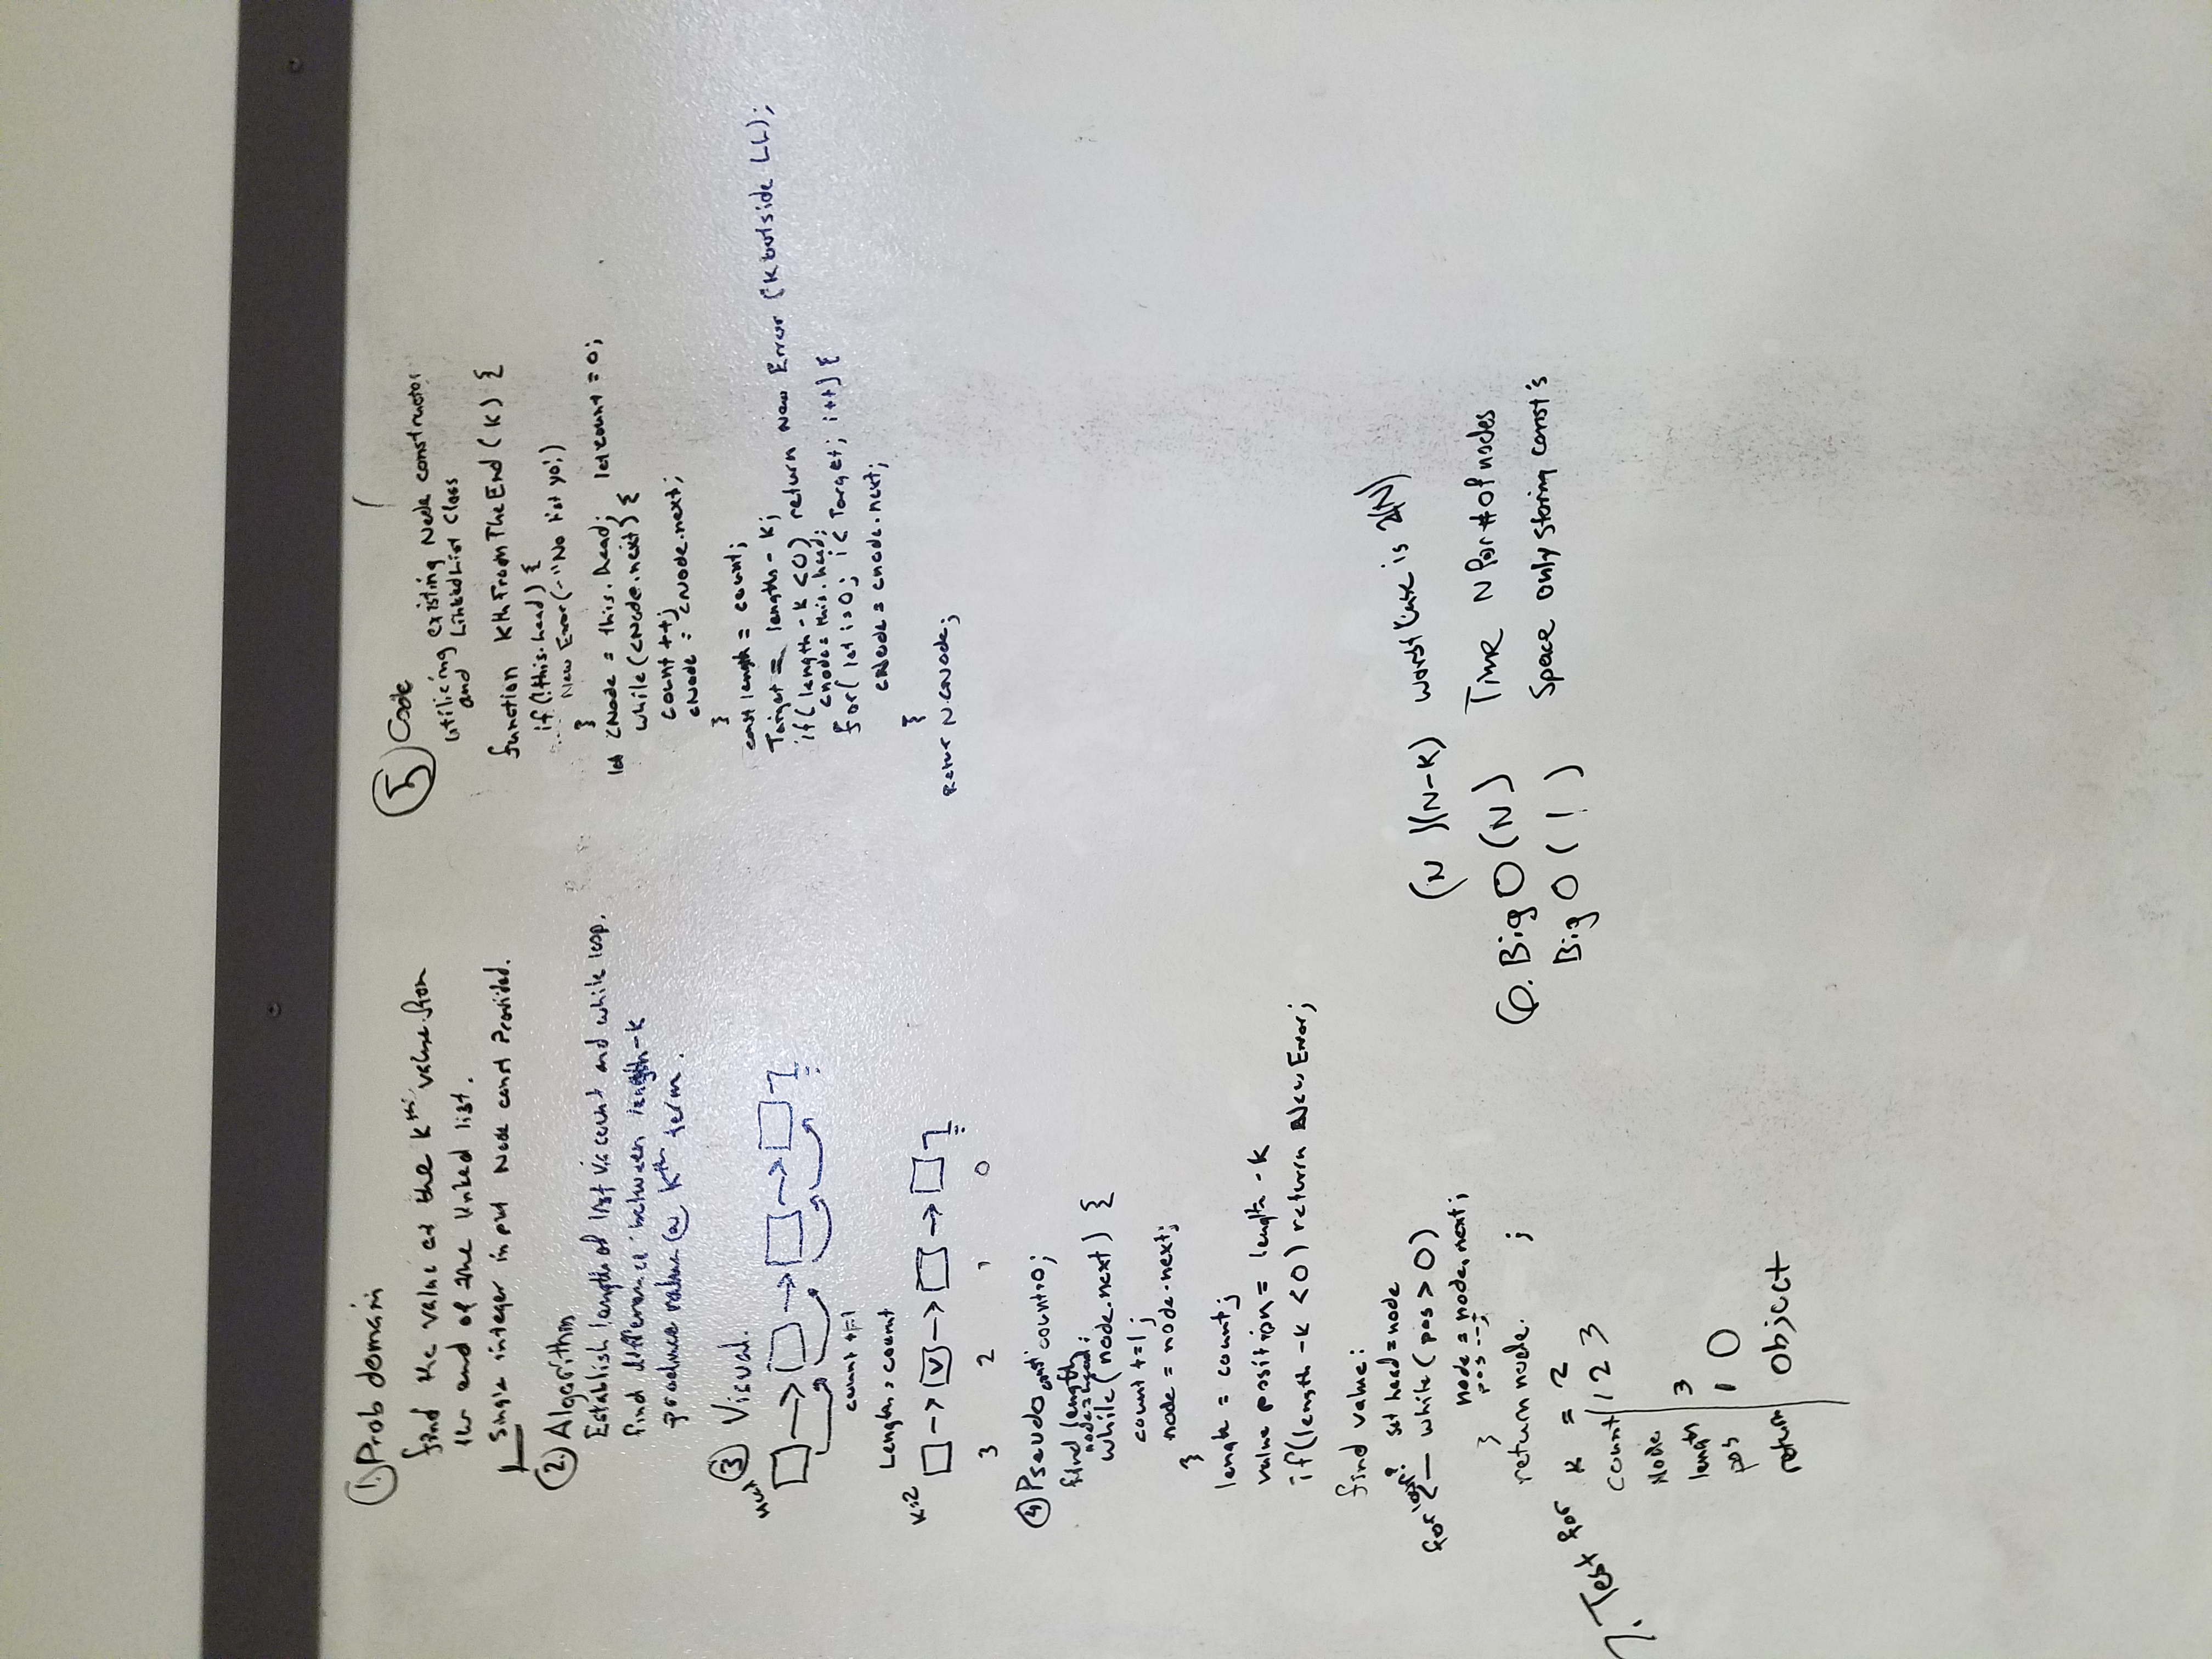 1. Prob domain
find the value at the kth value from
the end of the linked list.
Single integer input Node const Provided.
2. Algorithm
Establish length of list via count and while loop.
find difference between length-k
produce value @ kth term.
3 Visual.
Head
count +=1
Length = count
k=2
V
3 2 1 0
4 Pseudo const count=0;
find length
node=head;
while(node.next) {
count +=1;
node = node.next;
}
length = count;
value position = length - k
if(length -k <0) return New Error;
find value:
set head = node
for loop? while(pos > 0)
node = node.next;
pos--;
}
return node. ;
7. Test for k = 2
count 1 2 3
Node
length 3
pos 1 0
return object
5 Code
utilizing existing Node constructor
and LinkedList Class
function kthFromTheEnd(k) {
if(!this.head) {
New Error(-"No list yo!)
}
let cNode = this.head; let count = 0;
while(cNode.next) {
count ++;
cNode = cNode.next;
}
const length = count;
Target = length - k;
if(length - k <0) return New Error (k outside LL);
cnode = this.head;
for( let i=0; i< Target; i++) {
cNode = cnode.next;
}
Return cNode;
(N )(N-K) worst Case is 2(N)
6. Big O (N) Time N for # of nodes
Big O ( 1 ) Space only storing const's